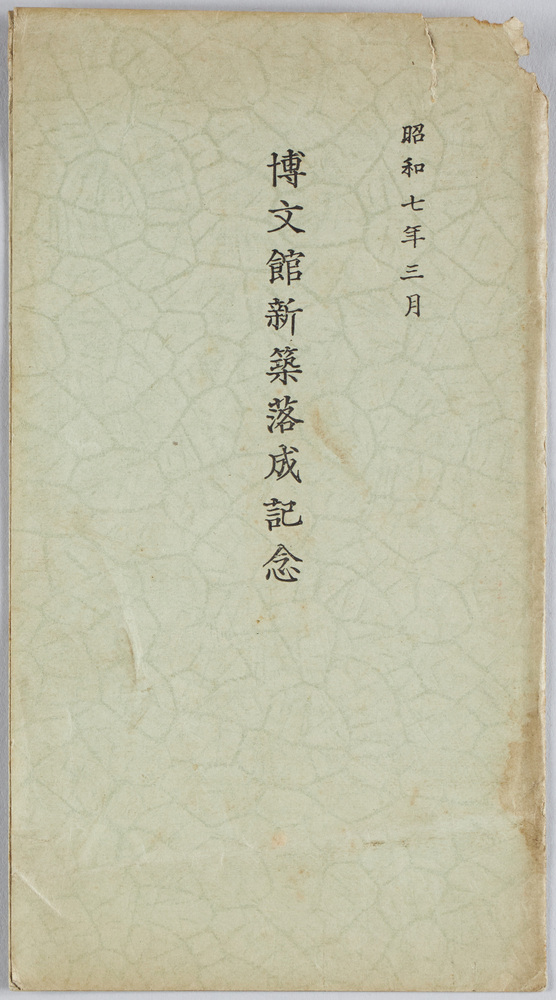 昭和七年三月
博文館新築落成記念